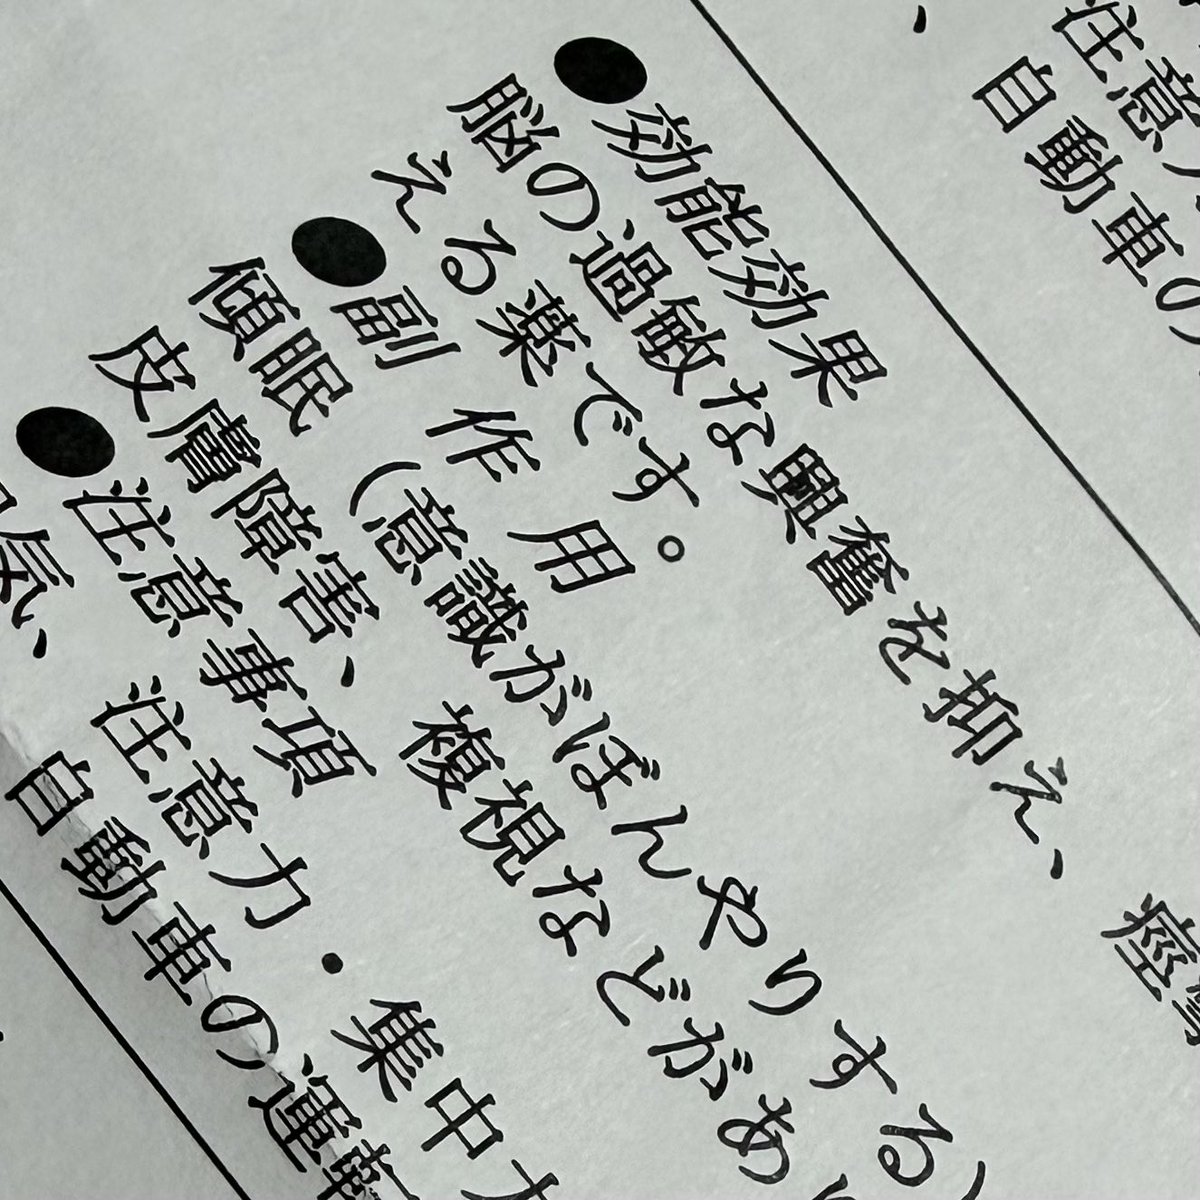 注意
自動車の
●効能効果
脳の過敏な興奮を抑え、痙
える薬です。
●副作用
傾眠（意識がぼんやりする）
皮膚障害、複視などがあ
●注意事項
注意力・集中
気、
自動車の運転